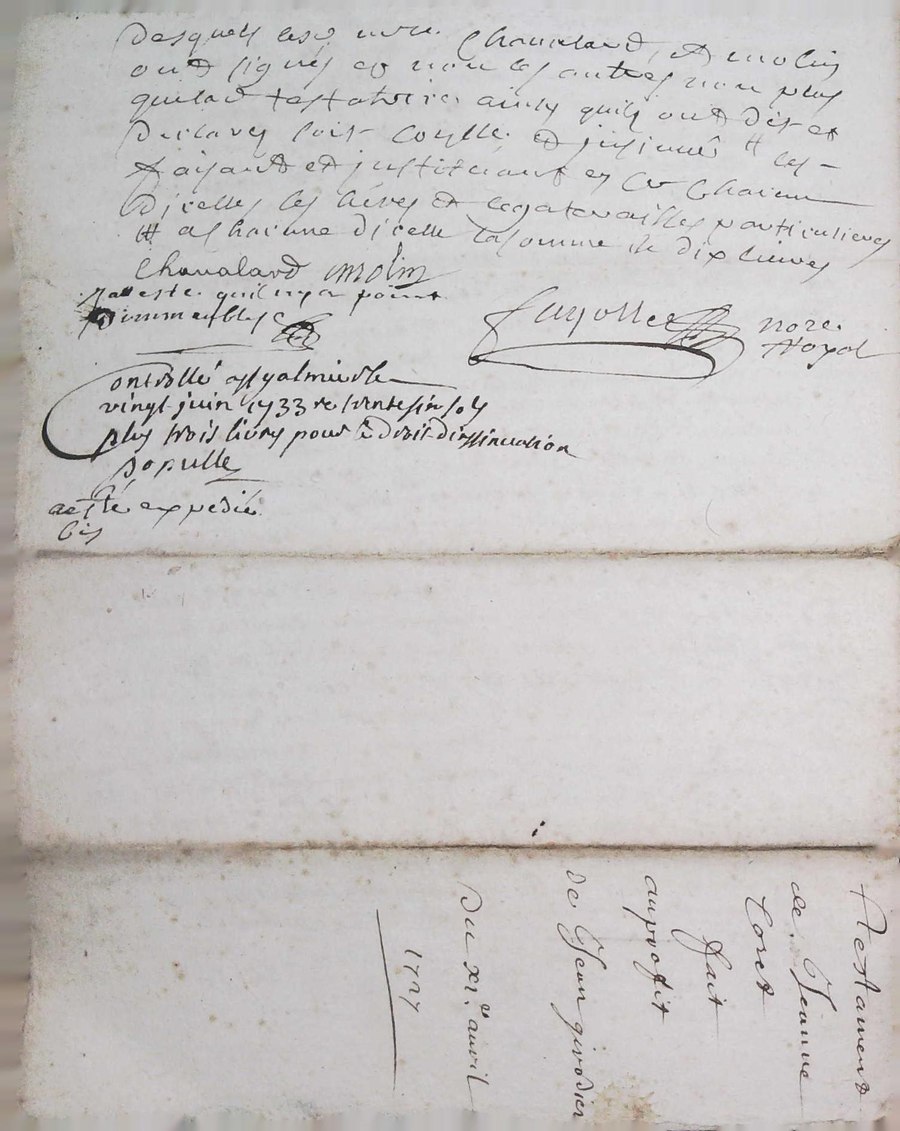 desquels les srs Chavalard, et molin
ont signés et non les autres non plus
que lad testatrice ainsy quils ont dit et
declaré soit coylle et jnsinué # les
faisant et jnstituant en ce Chacune
dicelles ses héres et legataresses particulieres
# a Chacune dicelle la somme de dix livres
Chavalard molin
Jatteste quil ny a point
dimmeubles
nore
Royal
Controllé a st galmier le
vingt juin 1733 re trente six sols
plus trois livres pour le droit dinsinuation
populle
a esté expedié
bis
Testament
de Jeanne
Coret
fait
au profit
de Jean girodier
Du xie avril
1727